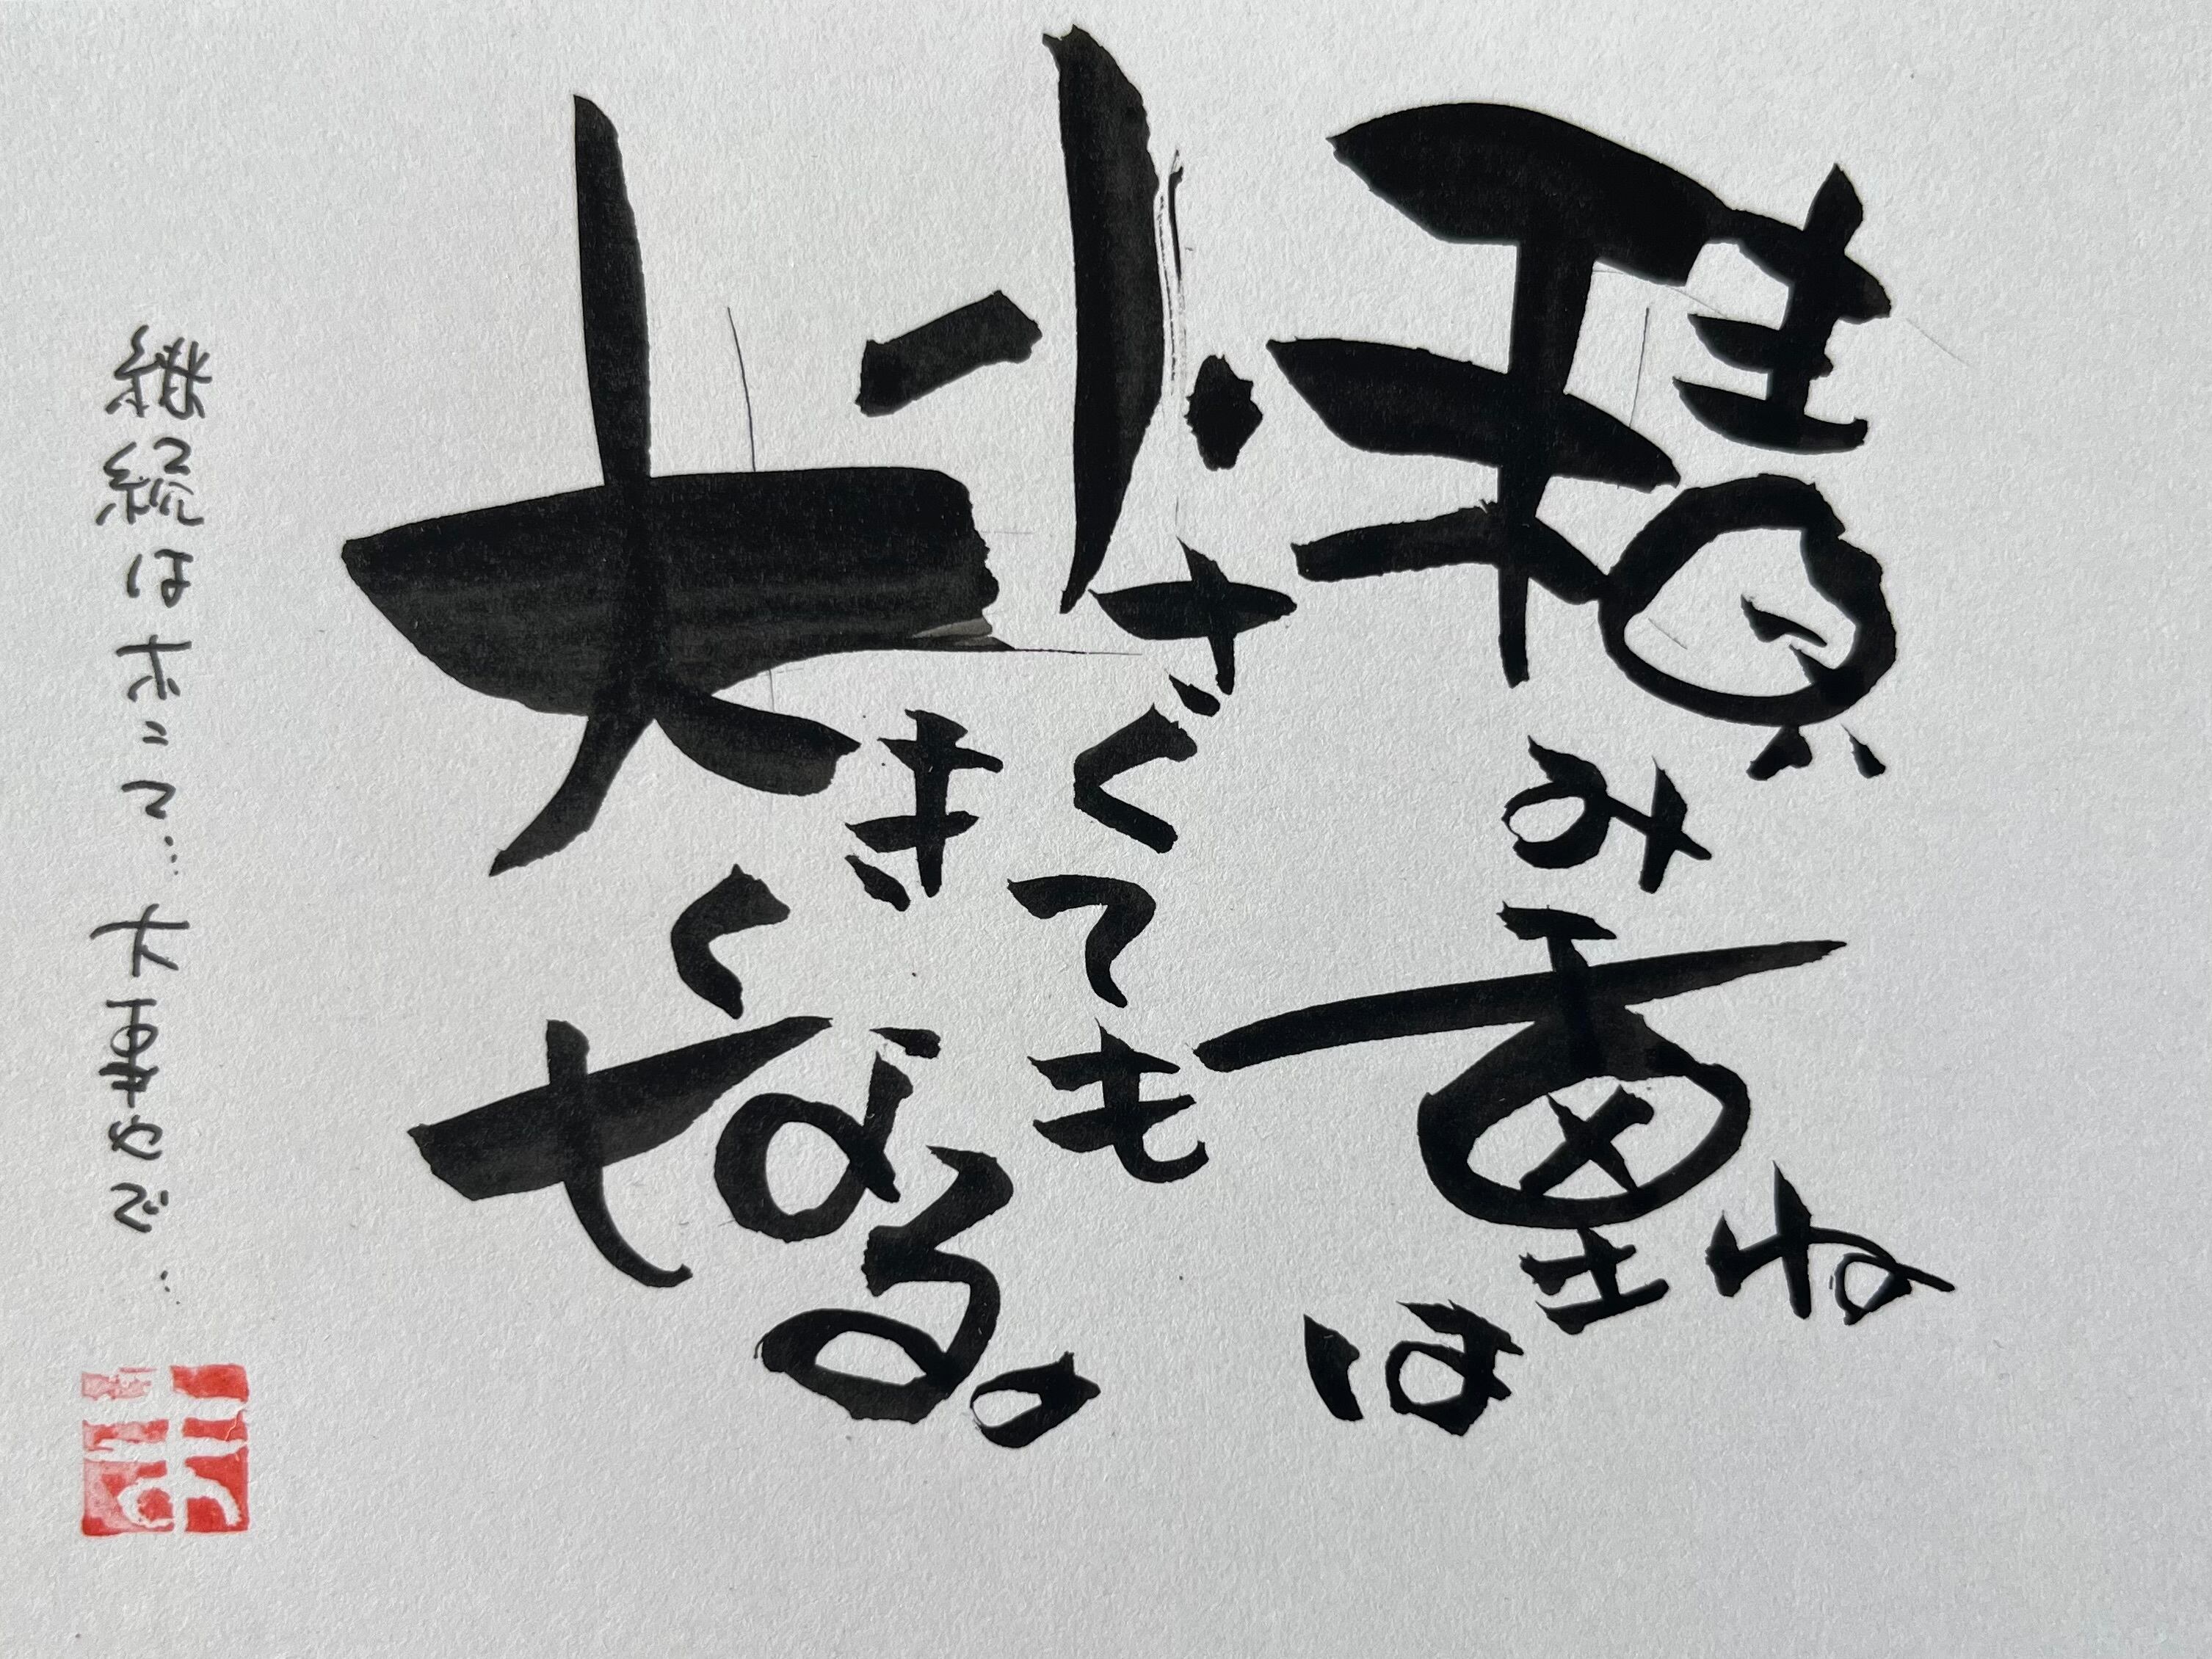 積み重ねは
小さくても
大きくなる。
継続はホンマ… 大事やで…